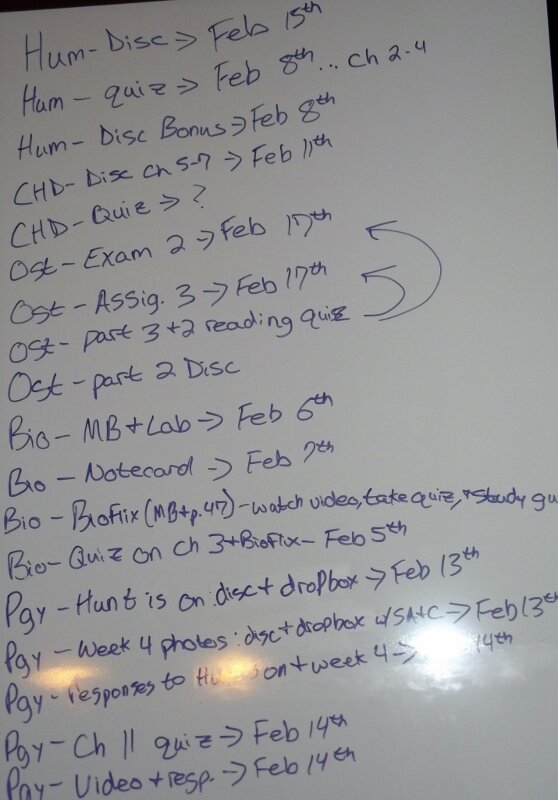 Hum - Disc → Feb 15th
Hum - quiz → Feb 8th... Ch 2-4
Hum - Disc Bonus → Feb 8th
CHD - Disc Ch 5-7 → Feb 11th
CHD - Quiz → ?
Ost - Exam 2 → Feb 17th
Ost - Assig. 3 → Feb 17th
Ost - part 3+2 reading quiz
Ost - part 2 Disc
Bio - MB + Lab → Feb 6th
Bio - Notecard → Feb 7th
Bio - Bioflix (MB + p.47) - watch video, take quiz, + study gu
Bio - Quiz on Ch 3 + Bioflix - Feb 5th
Pgy - Hunt is on: disc + dropbox → Feb 13th
Pgy - Week 4 photos: disc + dropbox w/ SA+C → Feb 13th
Pgy - responses to on + week 4 → 14th
Pgy - Ch 11 quiz → Feb 14th
Pgy - Video + resp. → Feb 14th